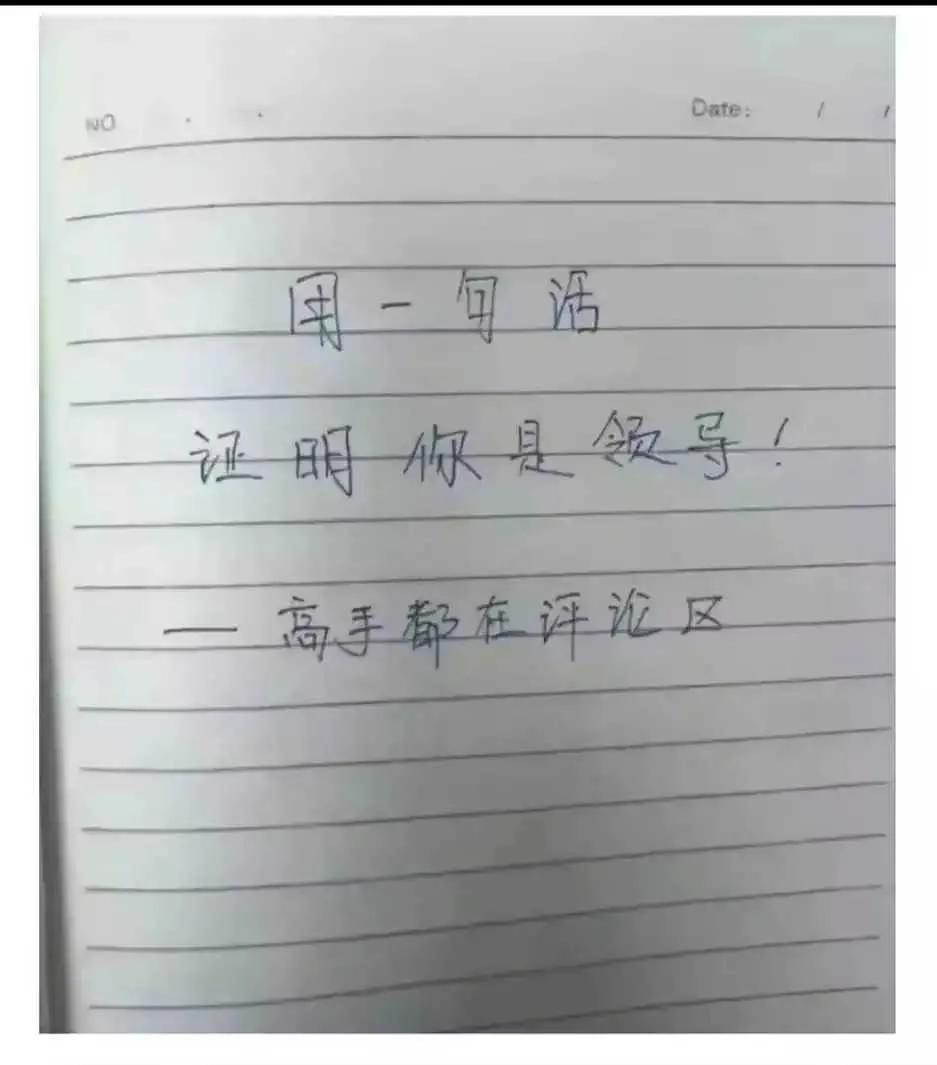 NO Date: / /
用一句话
证明你是领导!
— 高手都在评论区